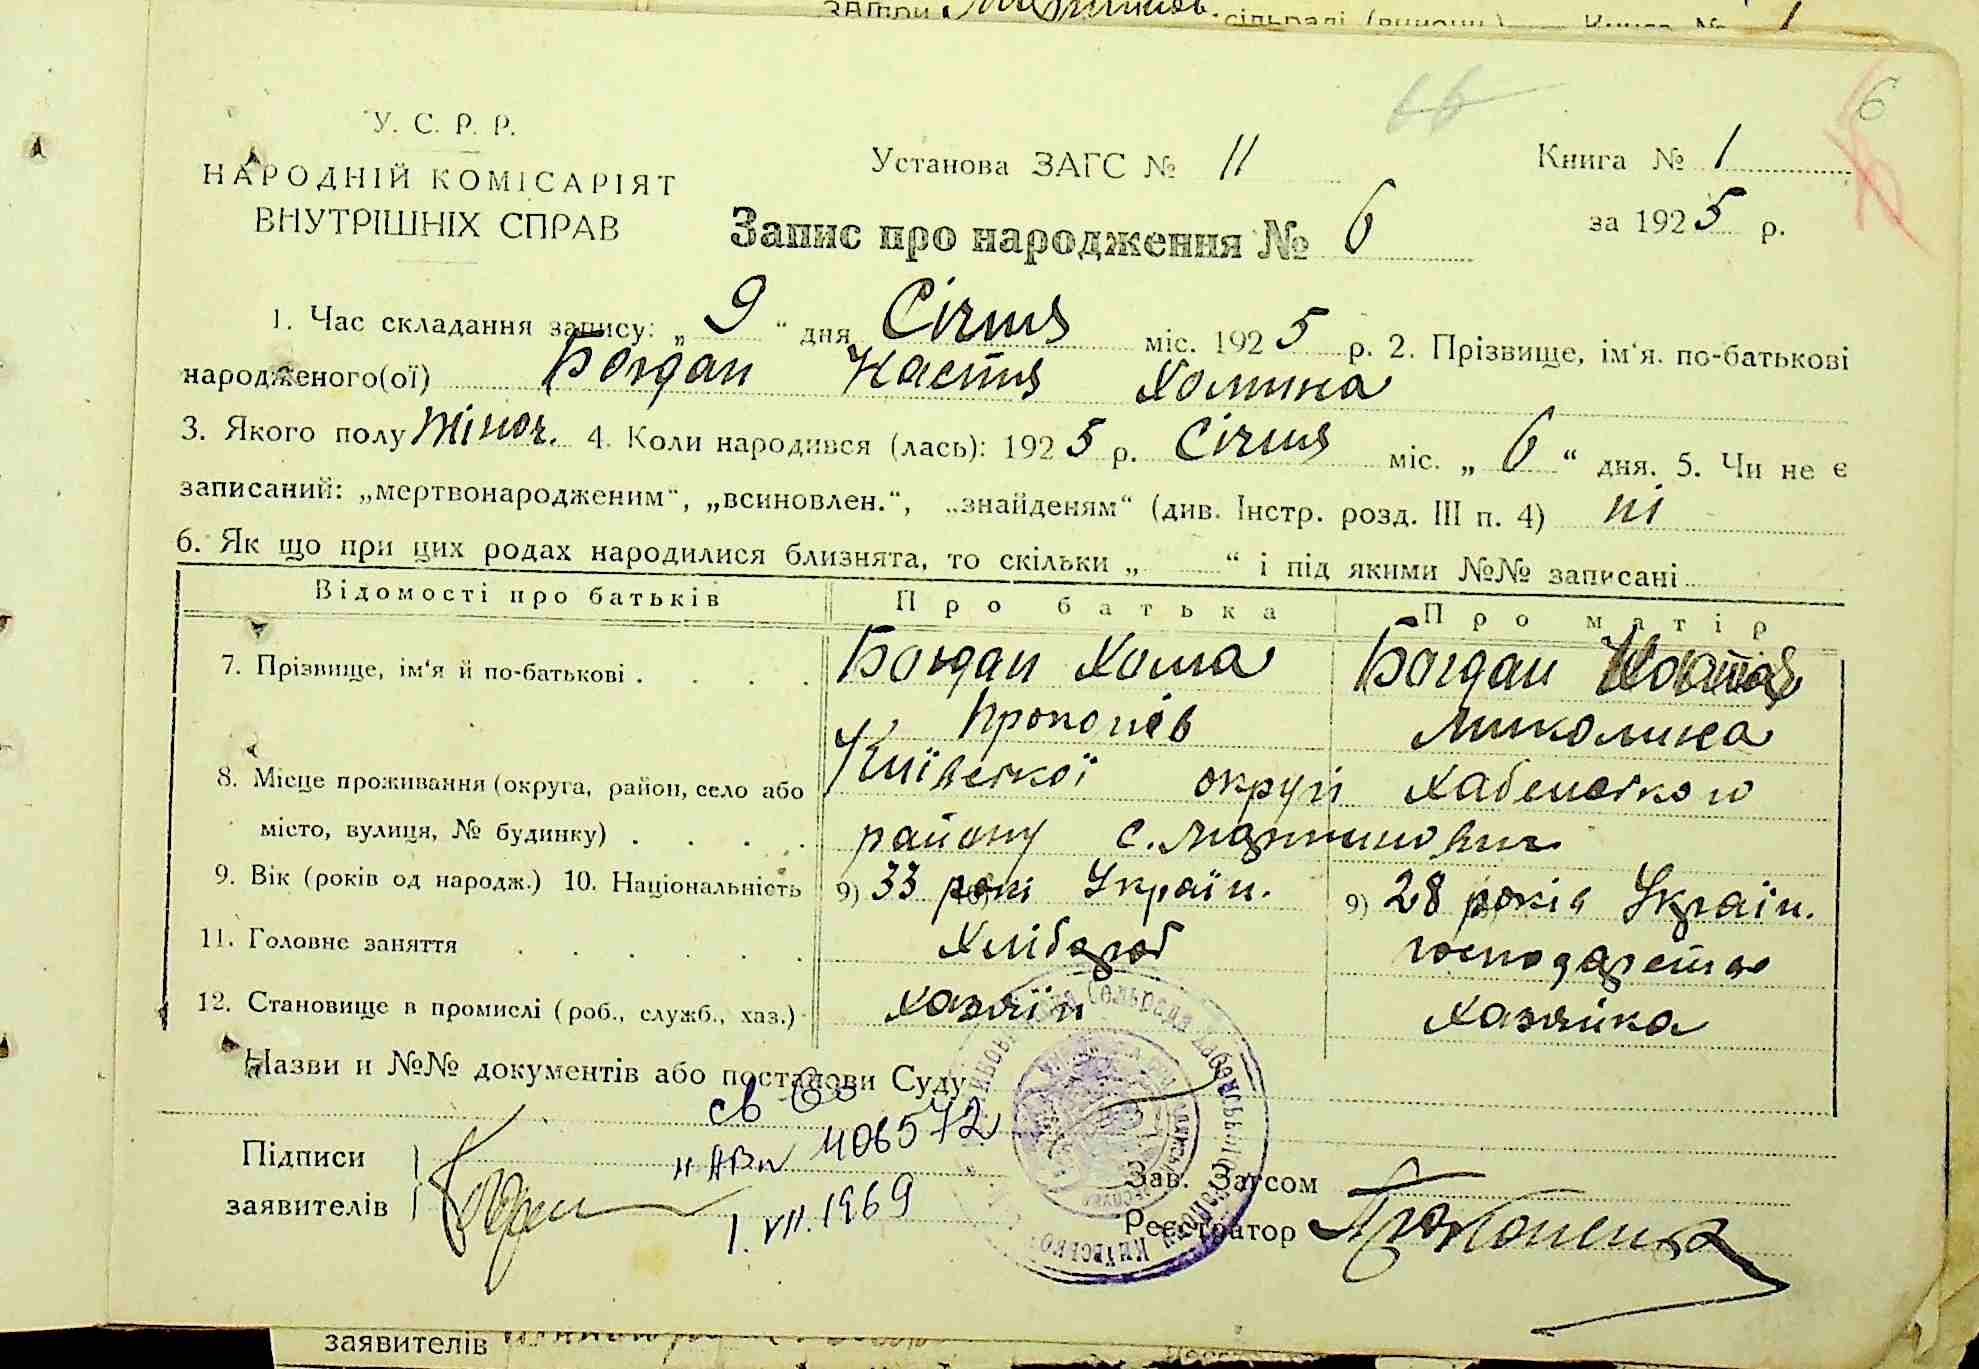 сільраді
Книга № 1
6
У. С. Р. Р.
НАРОДНІЙ КОМІСАРІЯТ
ВНУТРІШНІХ СПРАВ
Установа ЗАГС № 11
Книга № 1
за 1925 р.
Запис про народження № 6
1. Час складання запису: „ 9 “ дня Січня міс. 1925 р. 2. Прізвище, ім‘я. по-батькові
народженого(ої) Богдан Настя Хомина
3. Якого полу жіноч. 4. Коли народився (лась): 1925 р. Січня міс. „ 6 “ дня. 5. Чи не є
записаний: „мертвонародженим“, „всиновлен.“, „знайденям“ (див. Інстр. розд. III п. 4) ні
6. Як що при цих родах народилися близнята, то скільки „ “ і під якими №№ записані
Відомості про батьків Про батька Про матір
7. Прізвище, ім‘я й по-батькові . . . . Богдан Хома Богдан
Прокопів Миколина
8. Місце проживання (округа, район, село або Київської округи Хабенського
місто, вулиця, № будинку) . . . . району с. Мартинович
9. Вік (років од народж.) 10. Національність 9) 33 рокі Україн. 9) 28 років Україн.
11. Головне заняття . . . . . . Хлібороб господарство
12. Становище в промислі (роб., служб., хаз.) хазяїн хазяйка
Назви и №№ документів або постанови Суду
406572
1. VII. 1969
Підписи
заявителів
Зав. Загсом
Реєстратор Прокопенко
заявителів